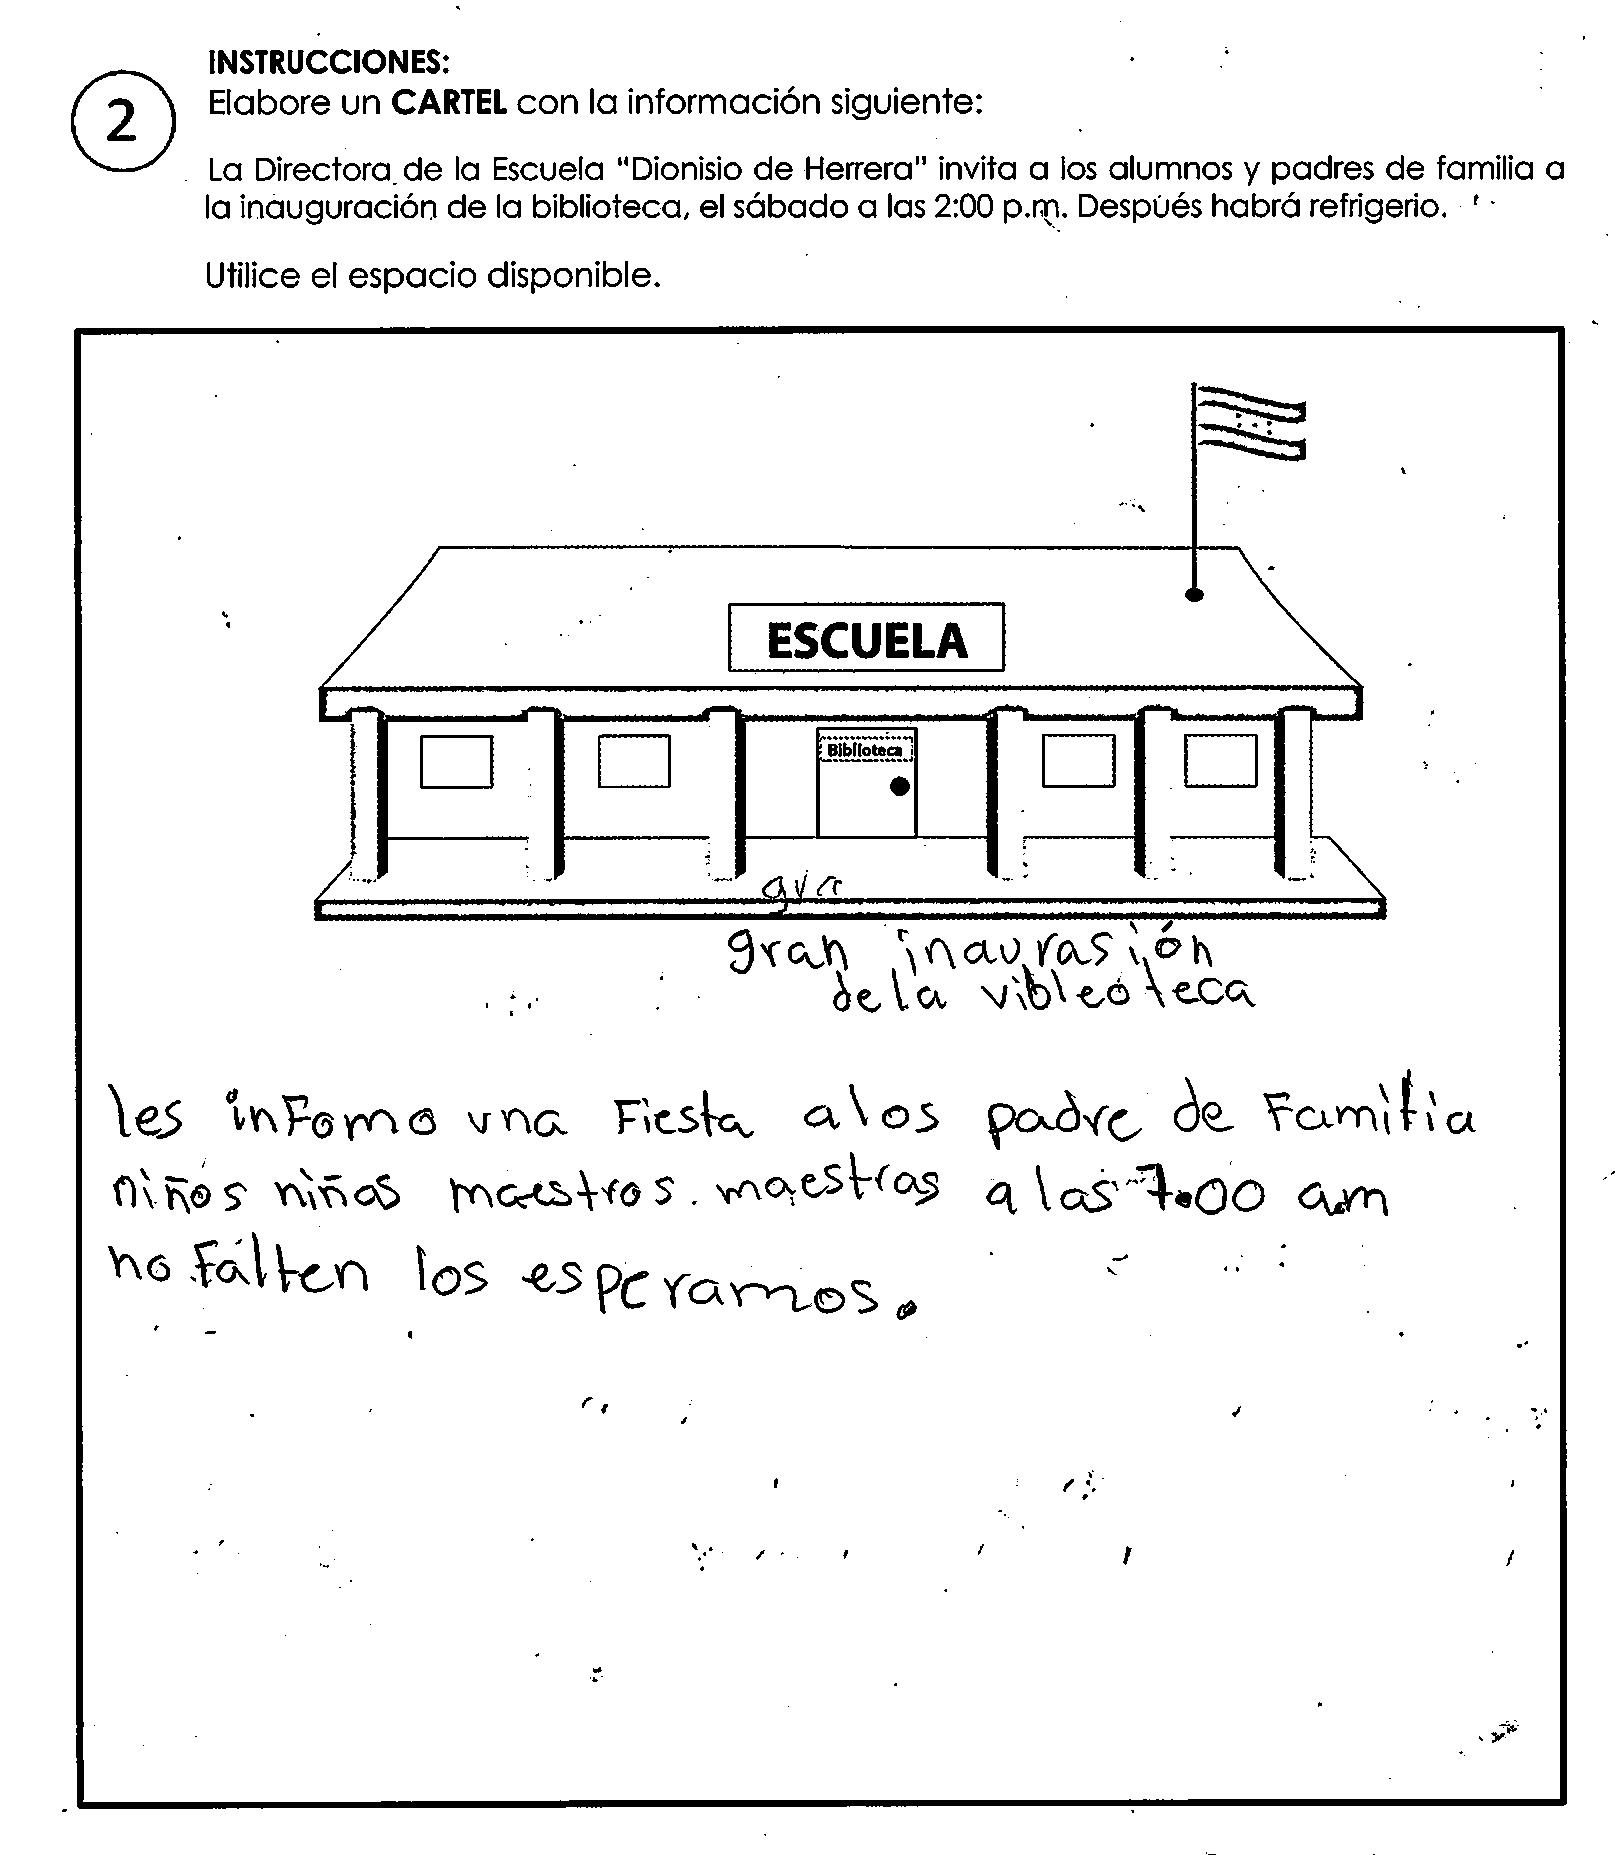 INSTRUCCIONES:
2
Elabore un CARTEL con la información siguiente:
La Directora de la Escuela "Dionisio de Herrera" invita a los alumnos y padres de familia a
la inauguración de la biblioteca, el sábado a las 2:00 p.m. Después habrá refrigerio.
Utilice el espacio disponible.
ESCUELA
Biblioteca
gva
gran inaurasión
de la vibleoteca
les infomo una Fiesta a los padre de Familia
niños niñas maestros. maestras a las 7.00 a.m
no falten los esperamos.